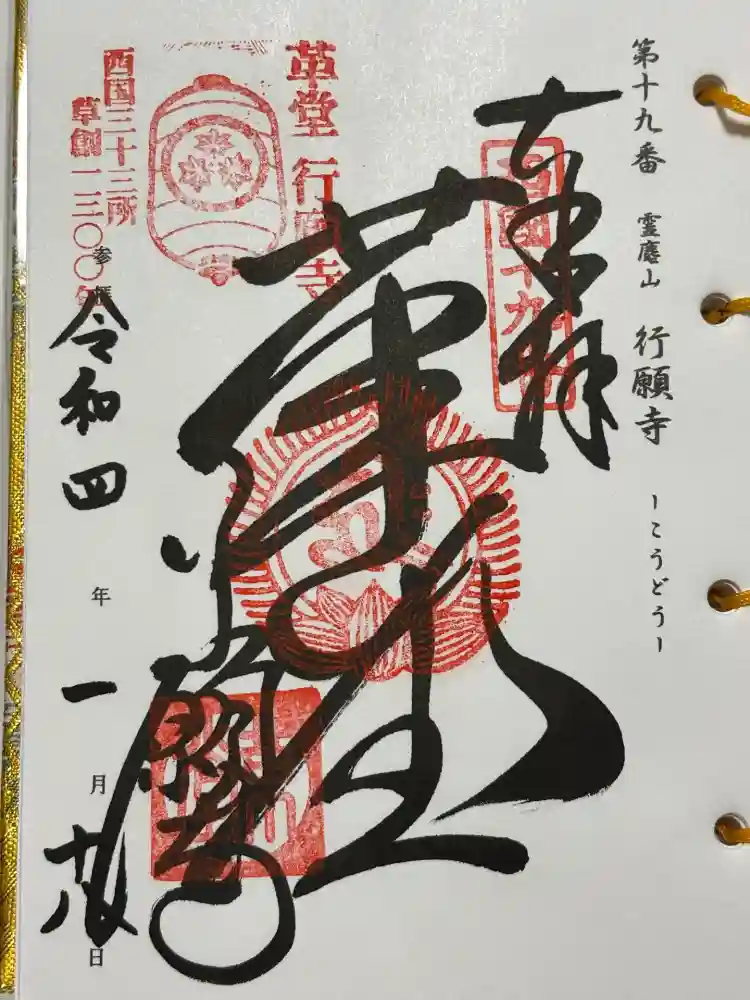 第十九番 霊應山 行願寺 ーこうどうー
奉拝
西国十九番
革堂
行願寺
革堂 行願寺
西国三十三所
草創一三〇〇年
令和四年一月 日